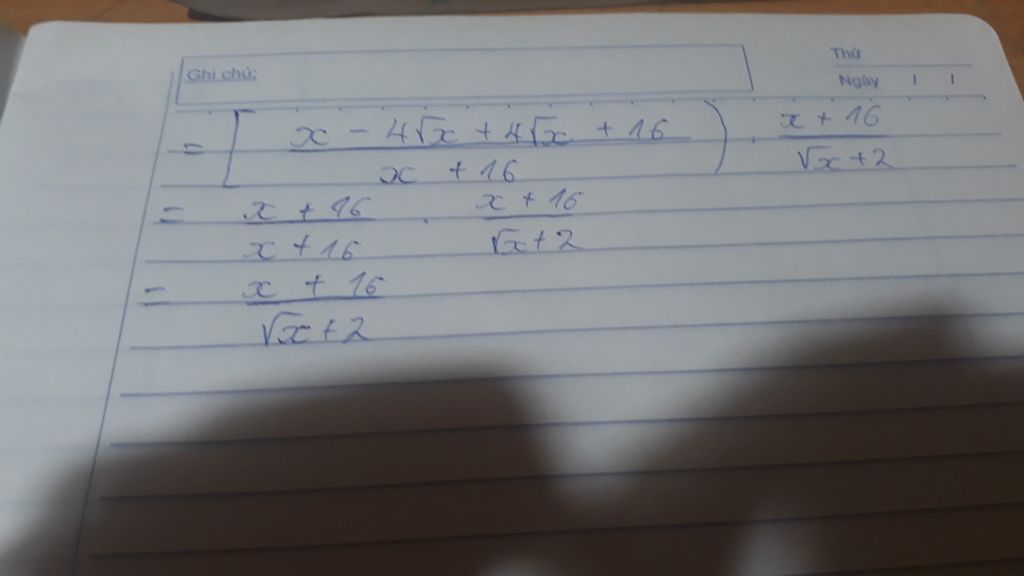 Ghi chú:
Thứ
Ngày / /
= [ (x - 4√x + 4√x + 16) / (x + 16) ) . (x + 16) / (√x + 2)
= (x + 16) / (x + 16) . (x + 16) / (√x + 2)
= (x + 16) / (√x + 2)